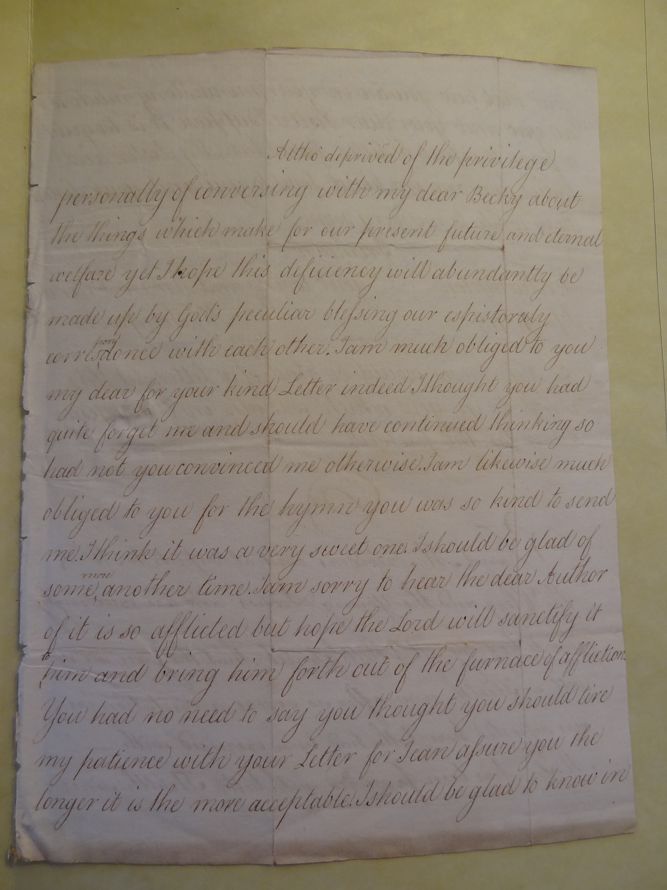 Altho' deprived of the privilege
personally of conversing with my dear Becky about
the things which make for our present future and eternal
welfare yet I hope this deficiency will abundantly be
made up by God's peculiar blessing our espistoraly
correspondence with each other. I am much obliged to you
my dear for your kind Letter indeed I thought you had
quite forgit me and should have continued thinking so
had not you convinced me otherwise. I am likewise much
obliged to you for the hymn you was so kind to send
me. I think it was a very sweet one. I should be glad of
some more another time. I am sorry to hear the dear Author
of it is so afflicted but hope the Lord will sanctify it
to him and bring him forth out of the furnace of affliction.
You had no need to say you thought you should tire
my patience with your Letter for I can assure you the
longer it is the more acceptable. I should be glad to know in